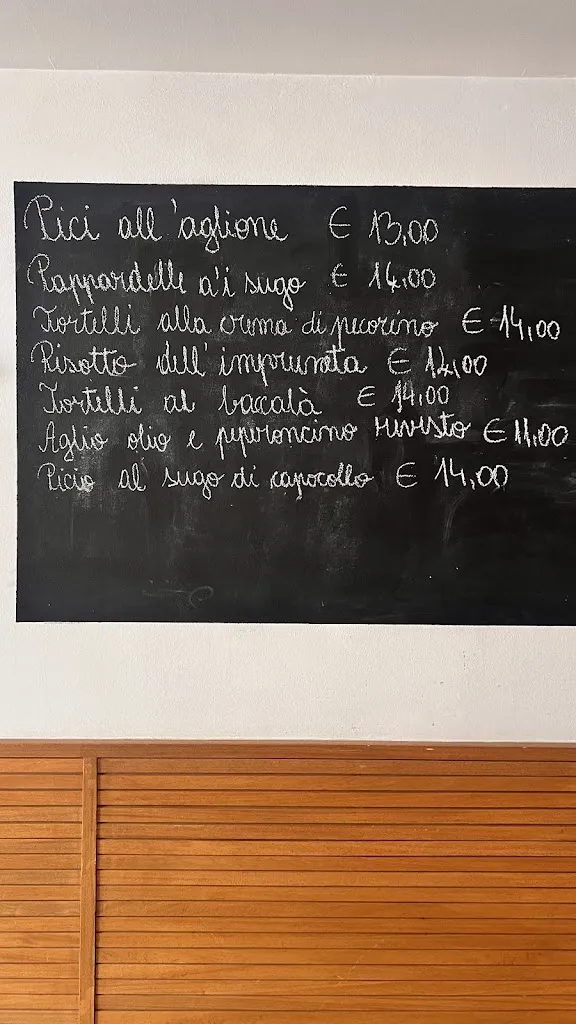 Pici all'aglione € 13,00
Pappardelle a'i sugo € 14,00
Tortelli alla crema di pecorino € 14,00
Risotto dell'impruneta € 12,00
Tortelli al baccalà € 14,00
Aglio olio e peperoncino rivisto € 11,00
Picio al sugo di capocollo € 14,00